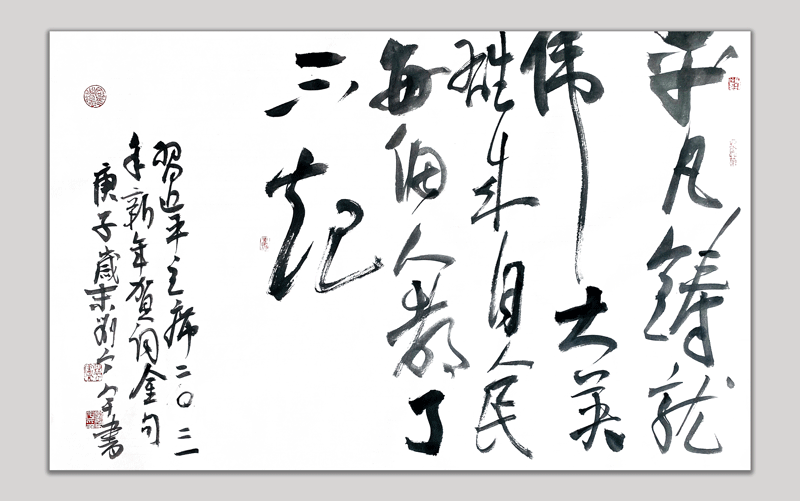 平凡铸就
伟大英
雄来自人民
每個人都了
不起
習近平主席二〇二一
年新年贺词金句
庚子歲末劉書